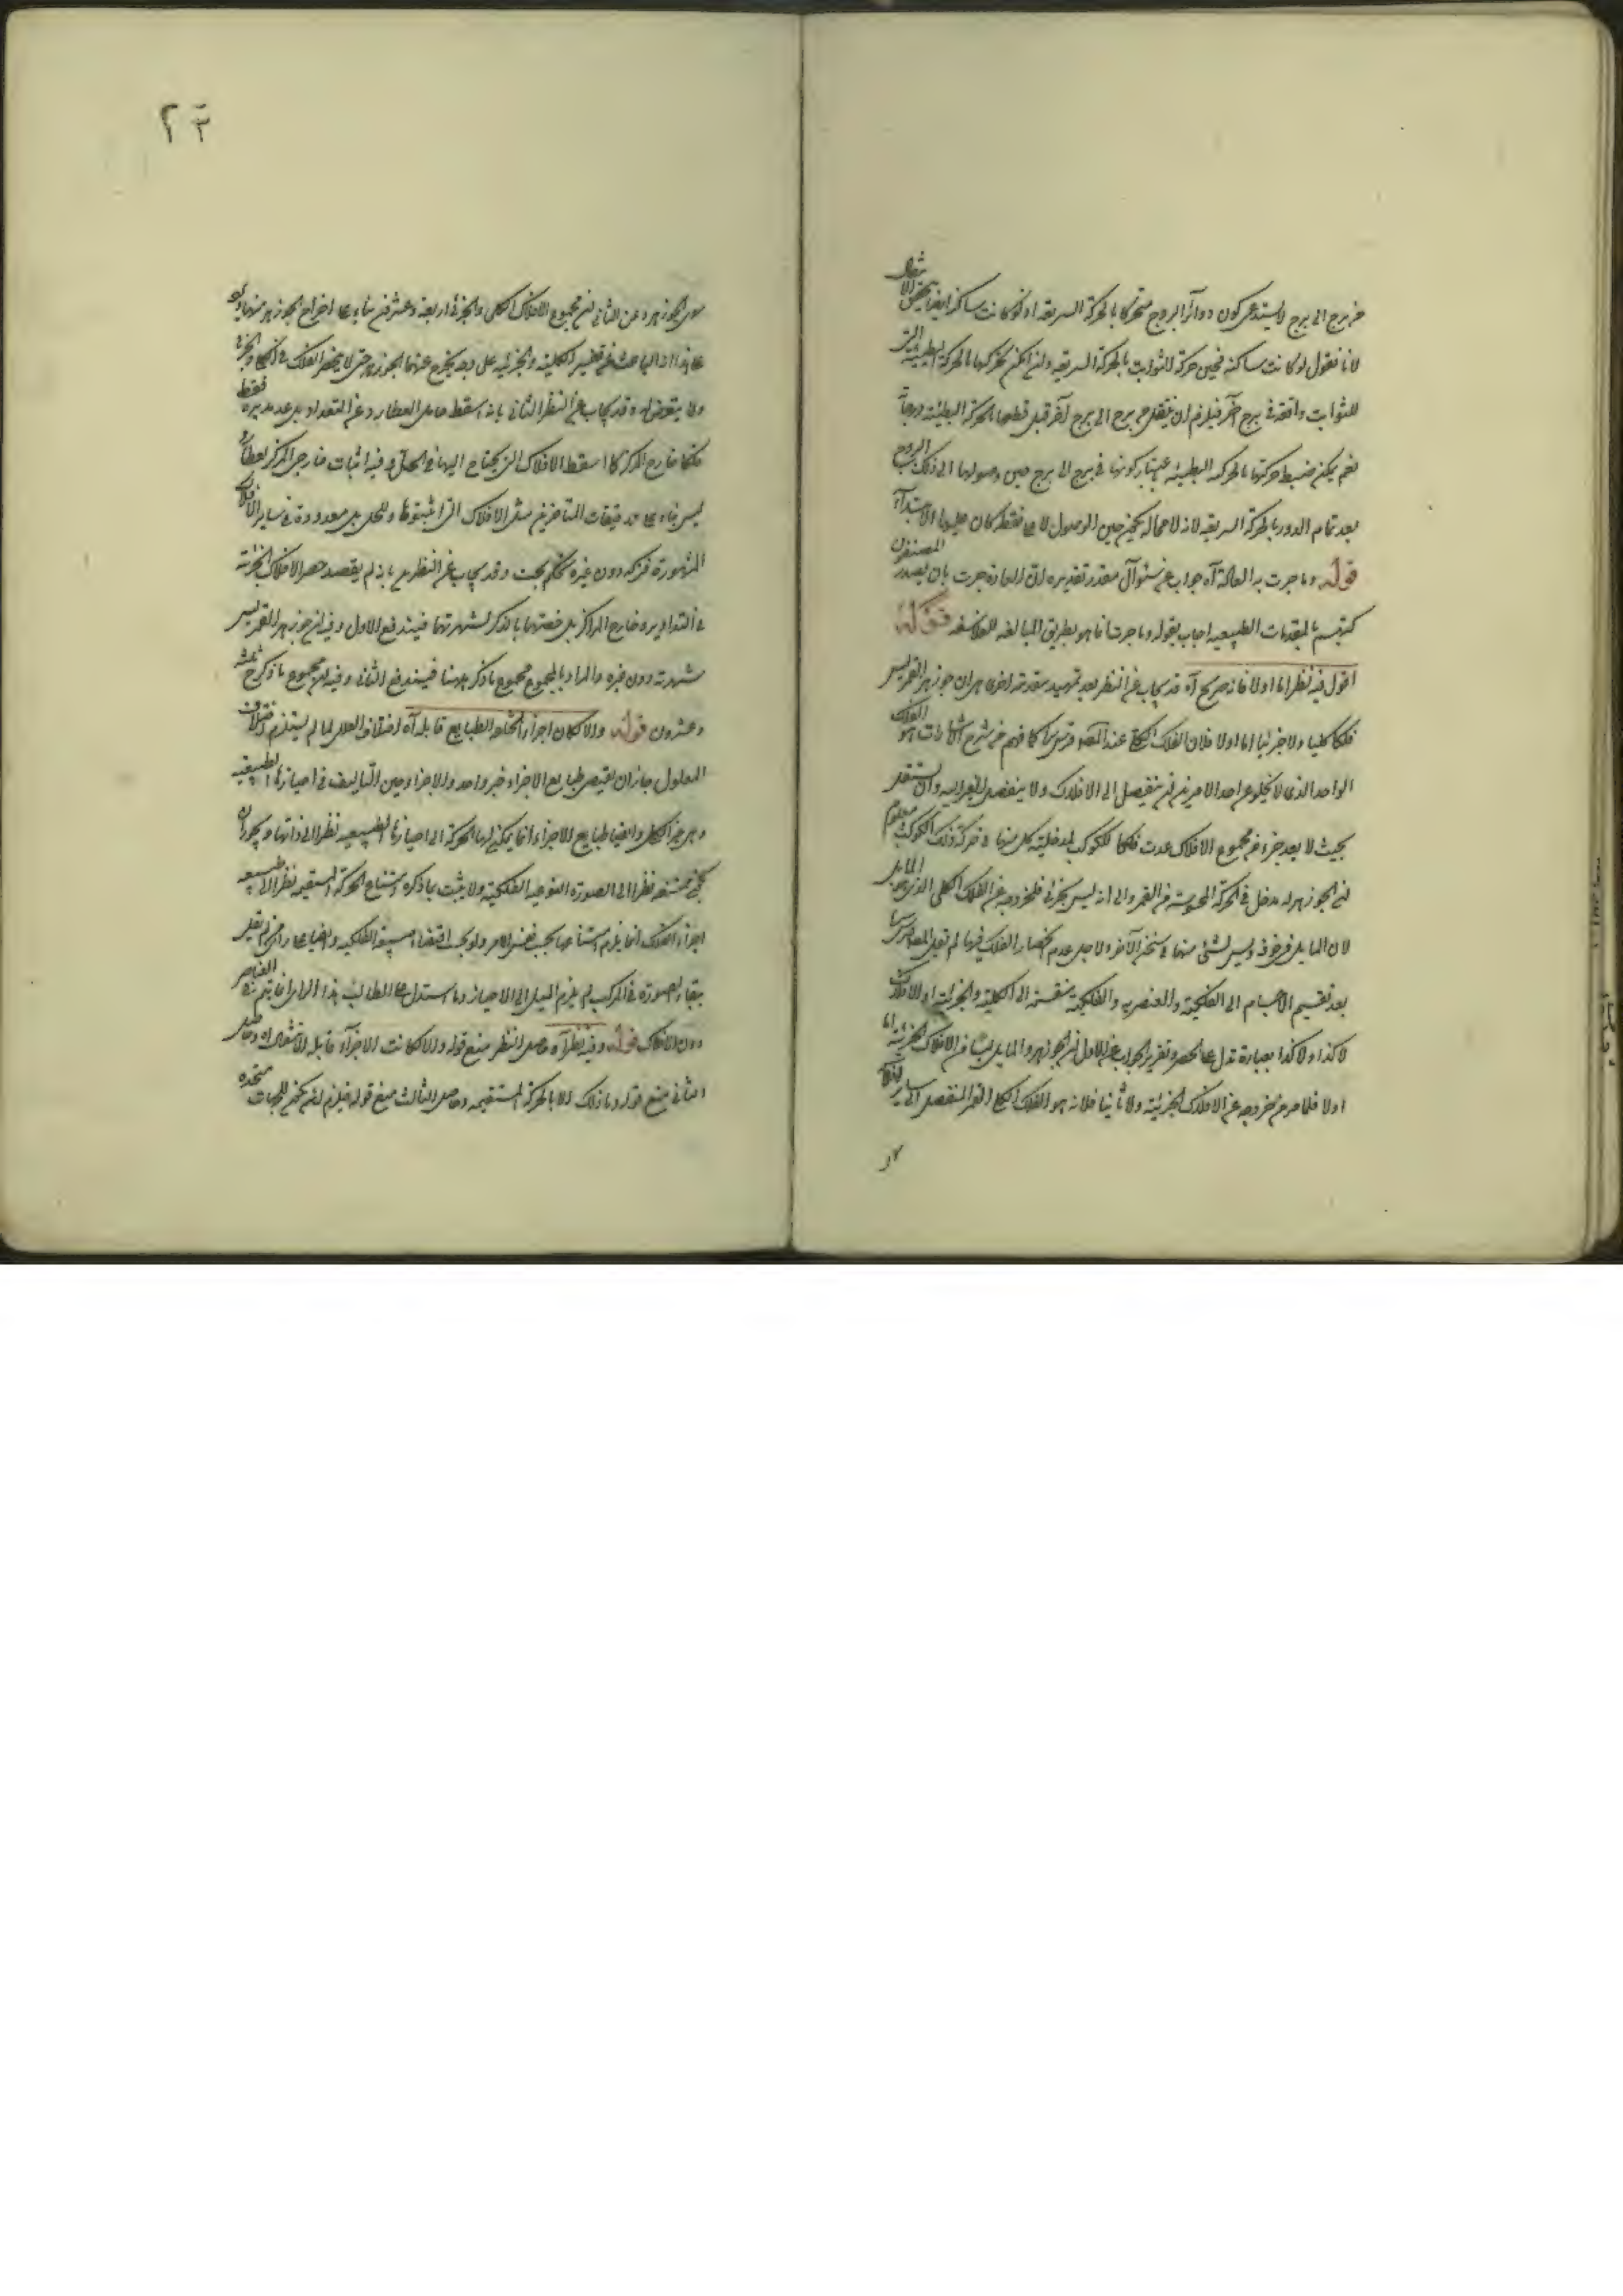 من برج الى برج لا يستدعى كون دوائر البروج متحركا بالحركة السريعة اذ لو كانت ساكنة ايضا يتحقق الانتقال
لانا نقول لو كانت ساكنة فحين حركة الثوابت بالحركة السريعة وان لم يكن تحركها بالحركة البطيئة التى
للثوابت واقعة فى برج آخر فيلزم ان ينتقل من برج الى برج آخر قبل قطعها بالحركة البطيئة درجة
نعم يمكن ضبط حركتها بالحركة البطيئة باعتبار كونها فى برج الى برج حين وصولها الى ذلك البرج
بعد تمام الدورة بالحركة السريعة لانه لا محالة يكون حين الوصول لا على نقطة كان عليها الابتداء
قوله وما جرت به العادة آه جواب عن سئوال مقدر تقديره ان العادة جرت بان يصدر المصنفون
كتبهم بالمقدمات الطبيعية اجاب بقوله وما جرت انما هو بطريق المبالغة للفلاسفة قوله
اقول فيه نظر اما اولا فانه صريح آه قد يجاب عن النظر بعد تمهيد مقدمة اخرى هى ان جوزهر القمر ليس
فلكا كليا ولا جزئيا اما اولا فلان الفلك الكلى عند المص قدس سره كما فهم من شرح الاشارات هو الفلك
الواحد الذى لا يخلو عن احد الامرين ان ينفصل الى الافلاك ولا ينفصل الغير اليه وان يستقل
بحيث لا يعد جزء من مجموع الافلاك عدت فلكا للكوكب لمدخلية كل منها فى حركة ذلك الكوكب ومعلوم
ان الجوزهر له مدخل فى الحركة المحسوسة من القمر والى انه ليس بجزئى فلخروجه عن الفلك الكلى الذى هو المايل
لان المايل فى جوفه وليس لشئ منها فى ثخن الآخر ولاجل عدم انحصار الفلك فيهما لم يقل المص قدس سره
بعد تقسيم الاجسام الى الفلكية والعنصرية والفلكية منقسمة الى الكلية والجزئية او الافلاك
لا كذا ولا كذا بعبارة تدل على الحصر وتقرير الجواب عن الاول ان الجوزهر والمايل ليسا من الافلاك الجزئية اما
اولا فلما مر من خروجه عن الافلاك الجزئية ولا ثانيا فلانه هو الفلك الكلى القمر المنفصل الى سائر افلاكه
سوى الجوزهر وعن الثانى ان مجموع الافلاك الكلى والجزئى اربعة وعشرون بناء على اخراج الجوزهر منها
على هذا الباحث عن تفسير الكلية والجزئية على وجه يخرج عنهما الجوزهر حتى لا ينحصر الفلك فى الكلى والجزئى
ولا يتعرض له وقد يجاب عن النظر الثانى بانه اسقط حامل العطارد عن التعداد بل عد مديره فقط
فلكا خارج المركز كما اسقط الافلاك التى يحتاج اليها فى الحل وفيه اثبات خارجى المركز لعطارد
ليس بناء على تدقيقات المتأخرين مثل الافلاك التى اثبتوها للحل بل معدودة فى ساير الافلاك
المشهورة فتركه دون غيره تحكم بحت وقد يجاب عن النظرين بانه لم يقصد حصر الافلاك الجزئية
فى التداوير وخارج المراكز بل خصتهما بالذكر لشهرتهما فيندفع الاول وفيه ان جوزهر القمر ليس
شهرته دون غيره والمراد بالمجموع مجموع ما ذكر ههنا فيندفع الثانى وفيه ان مجموع ما ذكر ح ثلثة
وعشرون قوله والا لكان اجزاء مختلفة الطبايع قابلة آه اختلاف العلل لما لم يستلزم اختلاف
المعلول جاز ان يقتضى طبايع الاجزاء خبر واحد والاجزاء حين التأليف فى احيازها الطبيعية
وهى حيز الكل وايضا طبايع الاجزاء انما يمكن لها الحركة الى احيازها الطبيعية نظرا الى ذاتها ويجوز ان
تكون ممتنعة نظرا الى الصورة النوعية الفلكية ولا يثبت بما ذكره امتناع الحركة المستقيمة نظرا الى طبيعة
اجزاء الفلك انما يلزم امتناعها بحسب نفس الامر ولو بحسب اقتضاء طبيعة الفلكية وايضا على راى من لم يقل
ببقاء الصورة فى المركب لم يلزم الميل الى الاحياز وما استدل على المطالب بهذا الراى انما يتم فى العناصر
دون الافلاك قوله وفيه نظر آه حاصل النظر منع قوله والا لكانت الاجزاء قابلة للانتقال آه وحاصل
الثانى منع قوله وما ذلك الا بالحركة المستقيمة وحاصل الثالث منع قوله فيلزم ان يكون للجهات متحدده